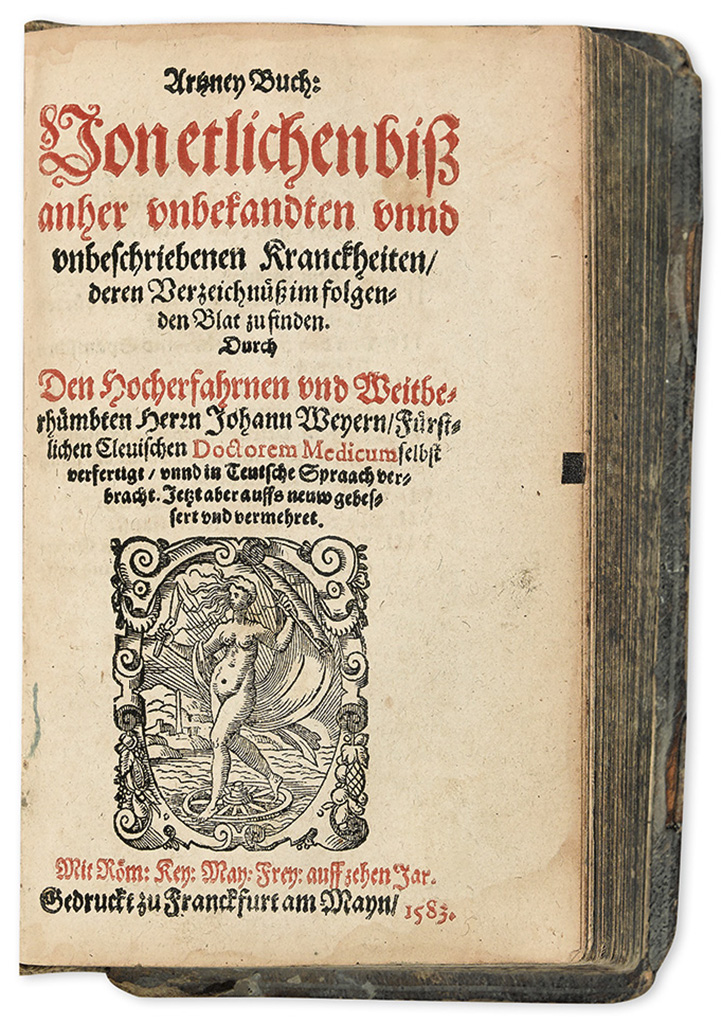 Artzney Buch:
Von etlichen biß
anher vnbekandten vnnd
vnbeschriebenen Kranckheiten/
deren Verzeichnüß im folgen-
den Blat zu finden.
Durch
Den Hocherfahrnen vnd Weitbe-
rhümbten Herrn Johann Weyern/Fürst-
lichen Cleuischen Doctorem Medicum selbst
verfertigt / vnnd in Teutsche Spraach ver-
bracht. Jetzt aber auffs neuw gebes-
sert vnd vermehret.
Mit Röm: Key: May: Frey: auff zehen Jar.
Gedruckt zu Franckfurt am Mayn/ 1583.